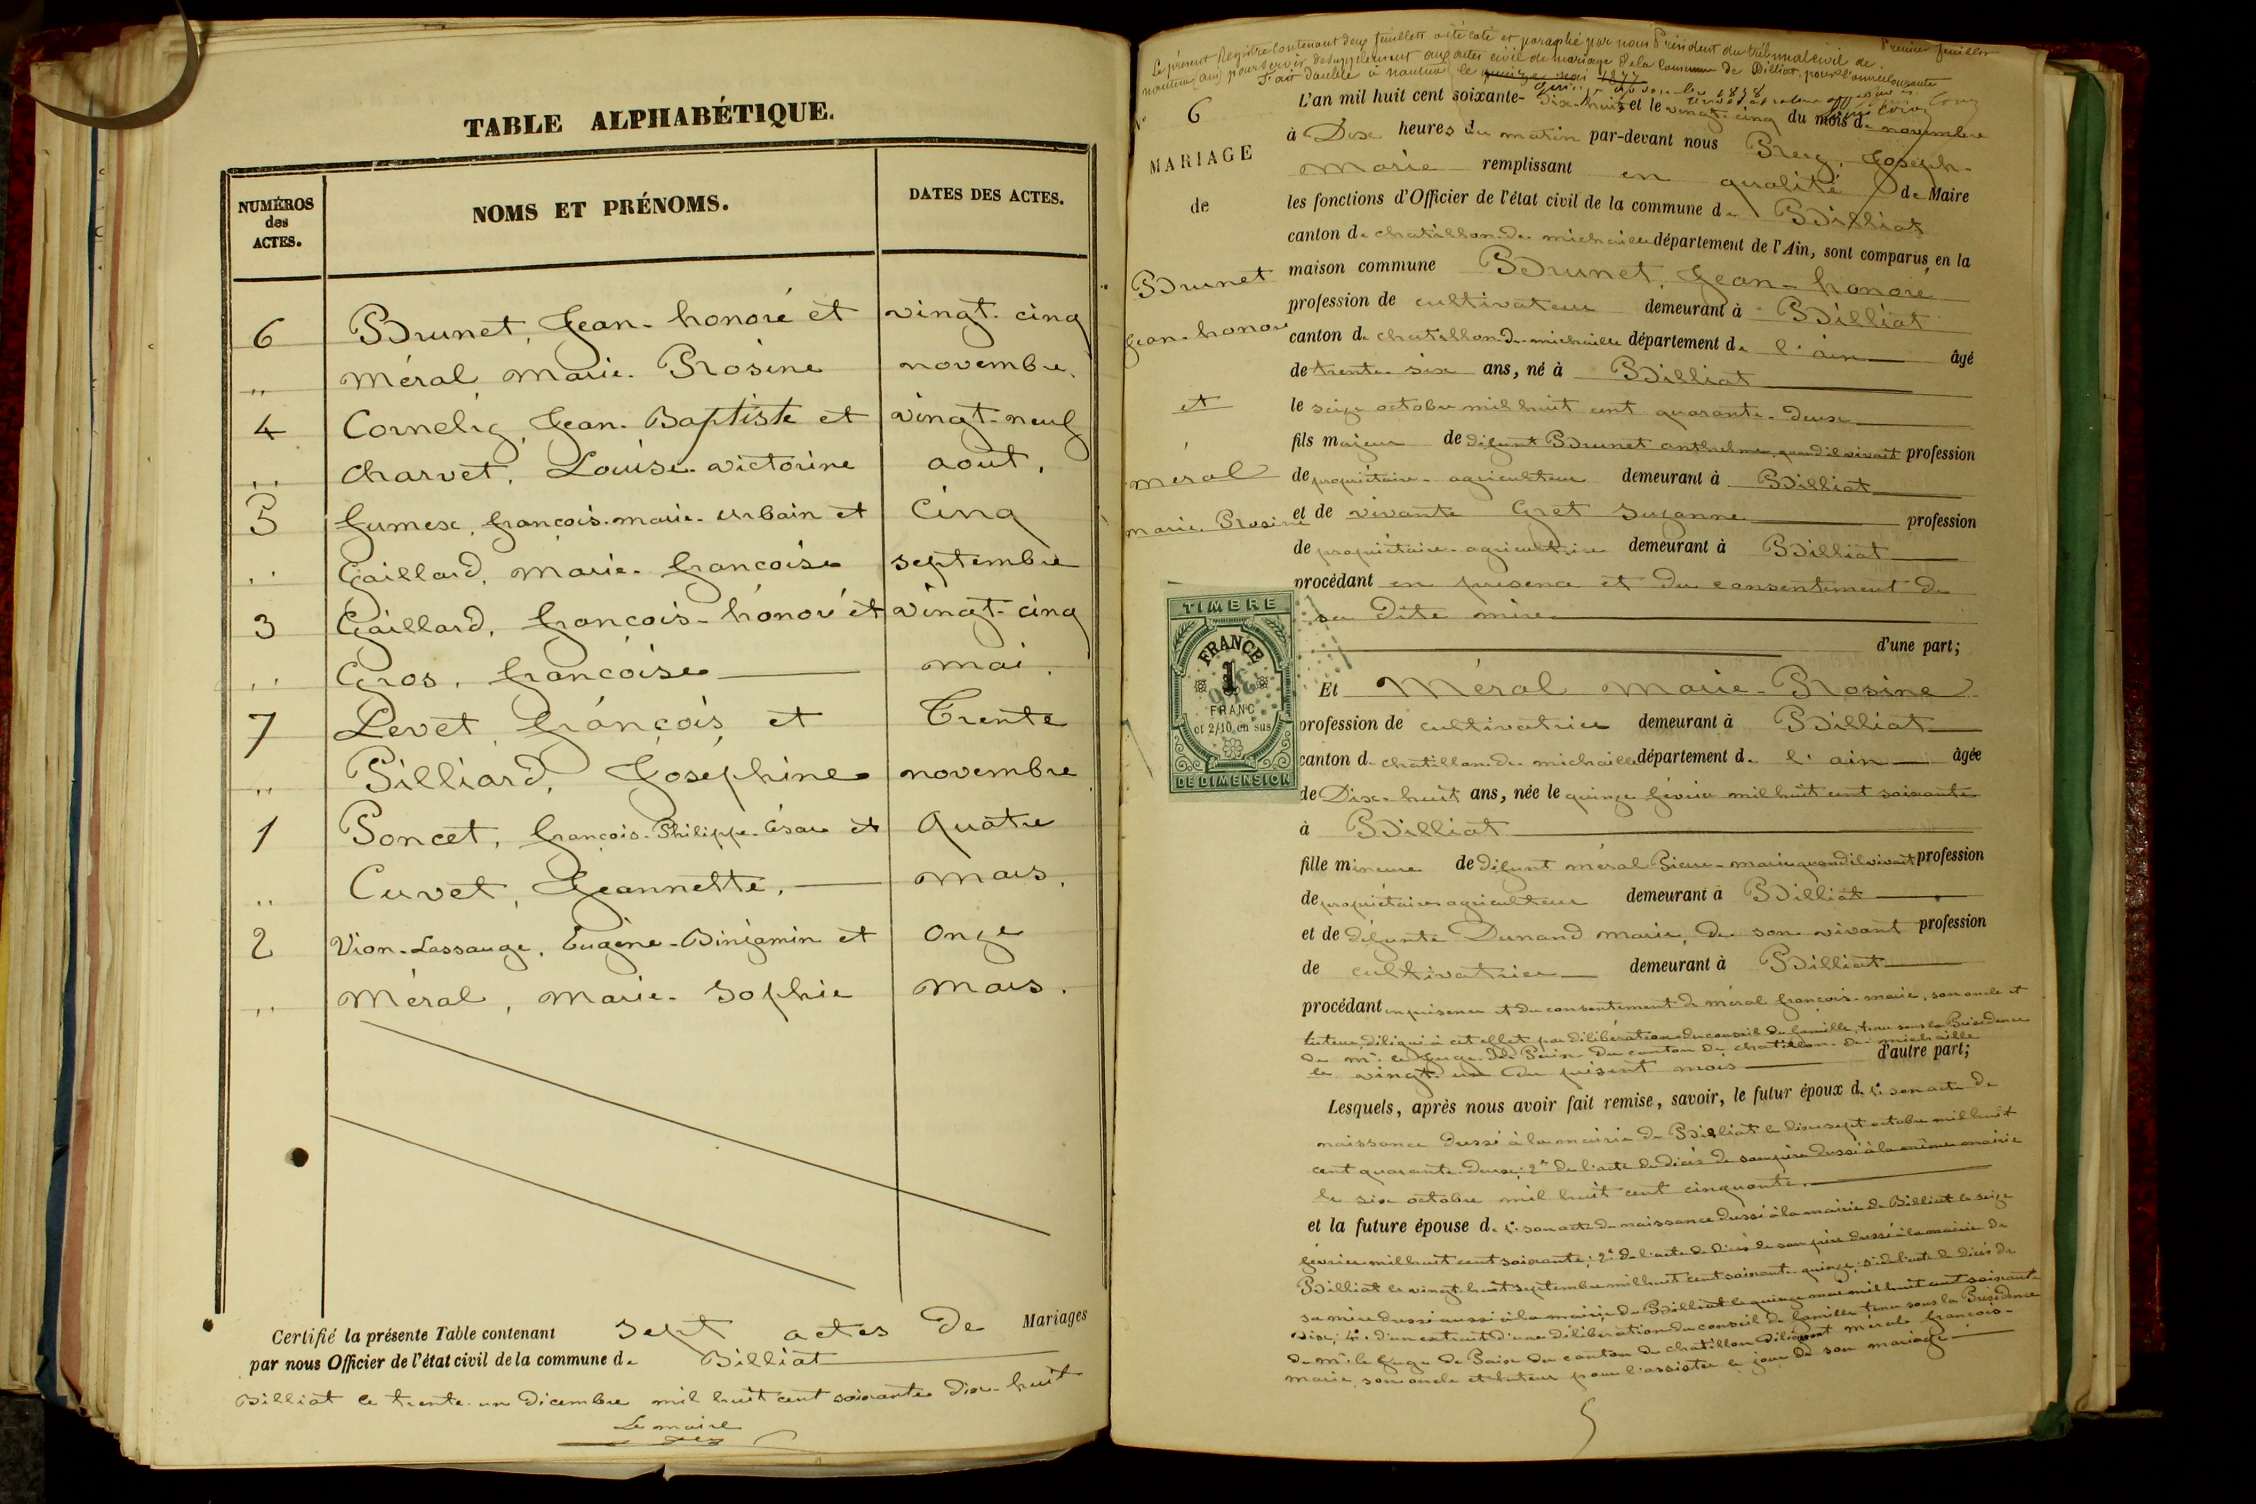 TABLE ALPHABÉTIQUE.
NUMÉROS
des
ACTES.
NOMS ET PRÉNOMS.
DATES DES ACTES.
6 Brunet, Jean-honoré et vingt-cinq
,, Méral Marie-Rosine novembre.
4 Cornelig, Jean-Baptiste et vingt-neuf
,, Charvet, Louise-victorine aout.
5 Gumex, françois-marie-urbain et Cinq
,, Gaillard, marie-françoise septembre
3 Gaillard, françois-honoré et vingt-cinq
,, Gros, françoise mai.
7 Levet françois et Trente
,, Billiard, Joséphine novembre
1 Poncet, françois-Philippe-César et Quatre
,, Cuvet, Jeannette, mars.
2 Vion-Lassauge, Eugène-Binjamin et Onze
,, Méral, marie-Sophie mars.
Certifié la présente Table contenant sept actes de Mariages
par nous Officier de l'état civil de la commune de Billiat
Billiat le trente-un Dicembre mil huit cent soixante dix-huit
Le maire
Premier feuillet
Le présent Registre contenant deux feuillets a été coté et paraphé par nous Président du tribunal civil de
nantua (ain) pour servir de supplément aux actes civil de mariage de la commune de Billiat, pour l'année courante
Fait double à nantua, le quinze mai 1877
N° 6
MARIAGE
de
Brunet
Jean-honoré
et
méral
marie Rosine
L'an mil huit cent soixante-dix-huit et le vingt-cinq du mois de novembre
à Dix heures du matin par-devant nous Preg, Joseph-
Marie remplissant en qualité de Maire
les fonctions d'Officier de l'état civil de la commune de Billiat
canton de chatillon-de-michaille département de l'Ain, sont comparus, en la
maison commune Brunet, Jean-honoré
profession de cultivateur demeurant à Billiat
canton de chatillon-de-michaille département de l'ain âgé
de trente-six ans, né à Billiat
le seize octobre mil huit cent quarante-deux
fils majeur de défunt Brunet anthelme, quand il vivait profession
de propriétaire-agriculteur demeurant à Billiat
et de vivante Gret Suzanne profession
de propriétaire-agricultrice demeurant à Billiat
procédant en présence et du consentement de
sa dite mère
d'une part;
TIMBRE
FRANCE
1
FRANC
et 2/10 en sus
DE DIMENSION
Et Méral Marie-Rosine
profession de cultivatrice demeurant à Billiat
canton de chatillon-de-michaille département de l'ain âgée
de Dix-huit ans, née le quinze février mil huit cent soixante
à Billiat
fille mineure de défunt méral Pierre-marie quand il vivait profession
de propriétaire agriculteur demeurant à Billiat
et de défunte Dunand marie, de son vivant profession
de cultivatrice demeurant à Billiat
procédant en présence et du consentement de méral françois-marie, son oncle et
tuteur, délégué à cet effet par délibération du conseil de famille, tenu sous la Présidence
de Mr. le Juge de Paix du canton de chatillon-de-michaille
le vingt-un du présent mois d'autre part;
Lesquels, après nous avoir fait remise, savoir, le futur époux de 1° son acte de
naissance dressé à la mairie de Billiat le dix-sept octobre mil huit
cent quarante-deux; 2° de l'acte de décès de son père dressé à la même mairie
le six octobre mil huit cent cinquante.
et la future épouse de 1° son acte de naissance dressé à la mairie de Billiat le seize
février mil huit cent soixante; 2° de l'acte de décès de son père dressé à la mairie de
Billiat le vingt-huit septembre mil huit cent soixante-quinze; 3° de l'acte de décès de
sa mère dressé aussi à la mairie de Billiat le quinze mai mil huit cent soixante
dix; 4° d'un extrait d'une délibération du conseil de famille tenu sous la Présidence
de Mr. le Juge de Paix du canton de chatillon déléguant méral françois-
marie, son oncle et tuteur pour l'assister le jour de son mariage